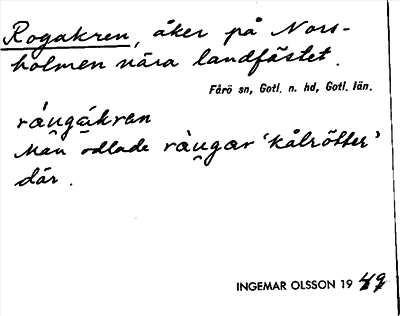 Rogakren, åker på Nors-
holmen nära landfästet.
Fårö sn, Gotl. n. hd, Gotl. län.
ráu̯gákran
Man odlade ràu̯gar 'kålrötter'
där.
INGEMAR OLSSON 19 49